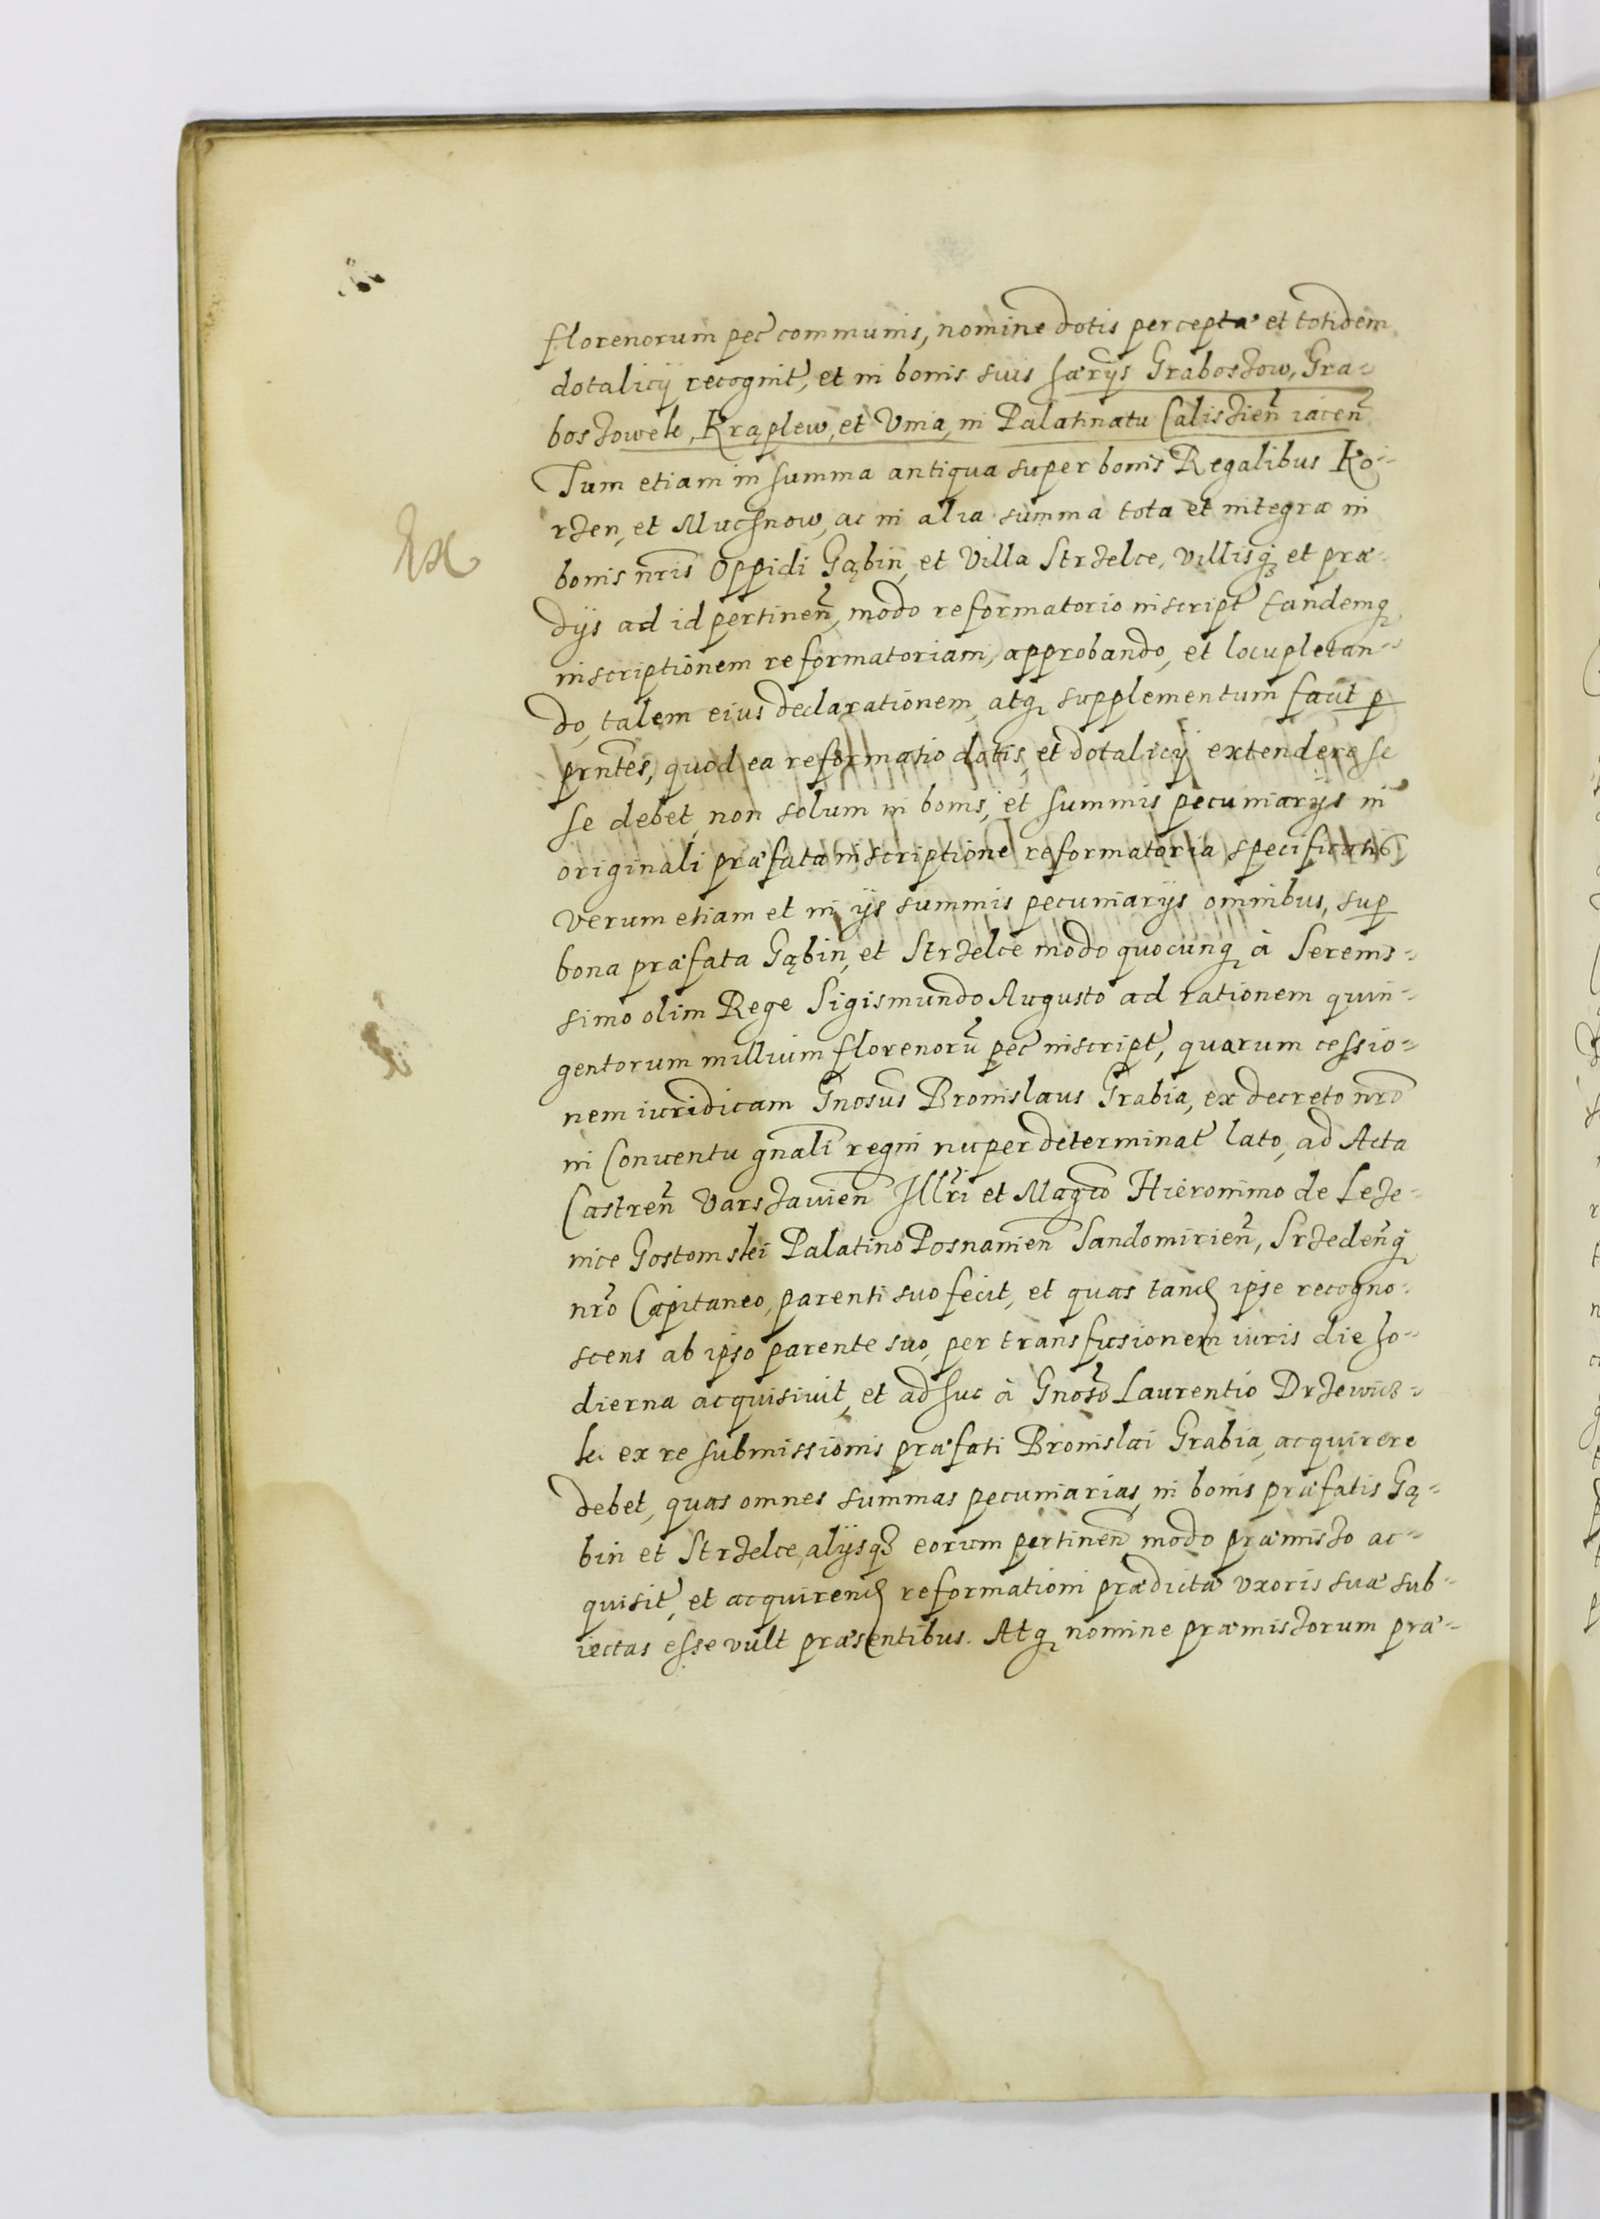 florenorum pec communis, nomine dotis perceptæ et totidem
dotalicij recognit, et in bonis suis hærijs Graboszow, Gra-
boszowek, Krąplew, et Unia, in Palatinatu Caliszien iacen
Tum etiam in summa antiqua super bonis Regalibus Ko-
rzen, et Muchnow, ac in alia summa tota et integra in
bonis nris Oppidi Gąbin, et Villa Strzelce, villisq et præ-
dijs ad id pertinen, modo reformatorio inscript eandemq
inscriptionem reformatoriam, approbando, et locupletan-
do, talem eius declarationem, atq supplementum facit p
prntes, quod ea reformatio dotis, et dotalicij extendere se
se debet, non solum in bonis, et summis pecuniarijs in
originali præfata inscriptione reformatoria specificatis
verum etiam et in ijs summis pecuniarijs omnibus, sup
bona præfata Gąbin, et Strzelce modo quocunq à Serenis-
simo olim Rege Sigismundo Augusto ad rationem quin-
gentorum millium florenoru pec inscript, quarum cessio-
nem iuridicam Gnosus Bronislaus Grabia, ex decreto nro
in Conventu gnali regni nuper determinat lato, ad Acta
Castren Varszavien Illri et Magco Hieronimo de Leze-
nice Gostomski Palatino Posnanien Sandomirien, Srzedenq
nro Capitaneo, parenti suo fecit, et quas tand ipse recogno-
scens ab ipso parente suo, per transfusionem iuris die ho-
dierna acquisivit, et adhuc à Gnoso Laurentio Drzewics-
ki ex re submissionis præfati Bronislai Grabia, acquirere
debet, quas omnes summas pecuniarias, in bonis præfatis Gą-
bin et Strzelce, alijsq eorum pertinen modo præmisso ac-
quisit, et acquirend reformationi prædictæ uxoris suæ sub-
iectas esse vult præsentibus. Atq nomine præmissorum præ-